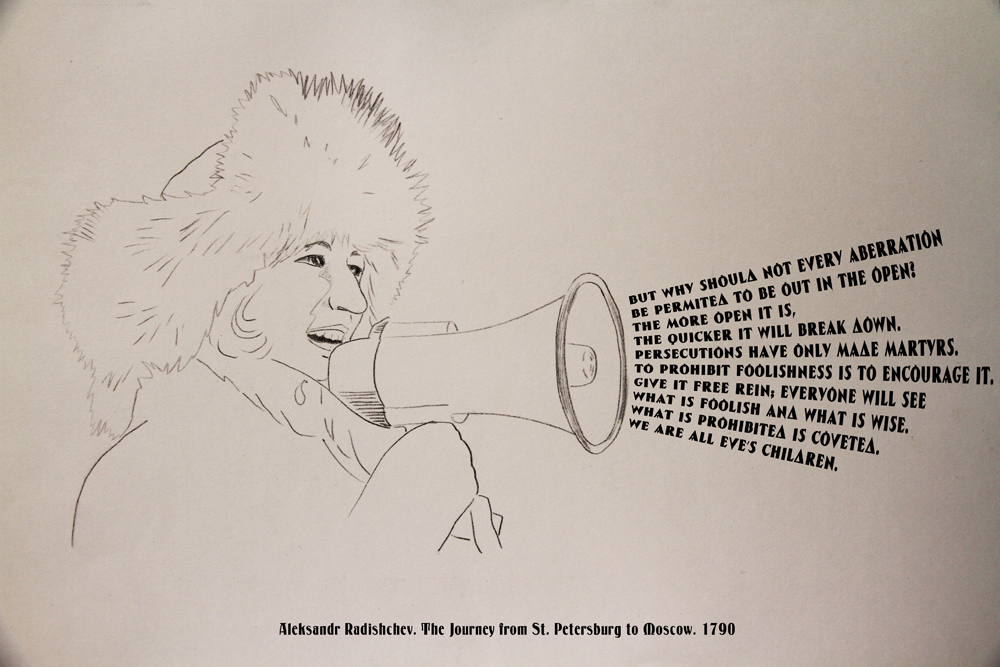 BUT WHY SHOULD NOT EVERY ABERRATION
BE PERMITED TO BE OUT IN THE OPEN?
THE MORE OPEN IT IS,
THE QUICKER IT WILL BREAK DOWN.
PERSECUTIONS HAVE ONLY MADE MARTYRS.
TO PROHIBIT FOOLISHNESS IS TO ENCOURAGE IT.
GIVE IT FREE REIN; EVERYONE WILL SEE
WHAT IS FOOLISH AND WHAT IS WISE.
WHAT IS PROHIBITED IS COVETED.
WE ARE ALL EVE'S CHILDREN.
Aleksandr Radishchev. The Journey from St. Petersburg to Moscow. 1790